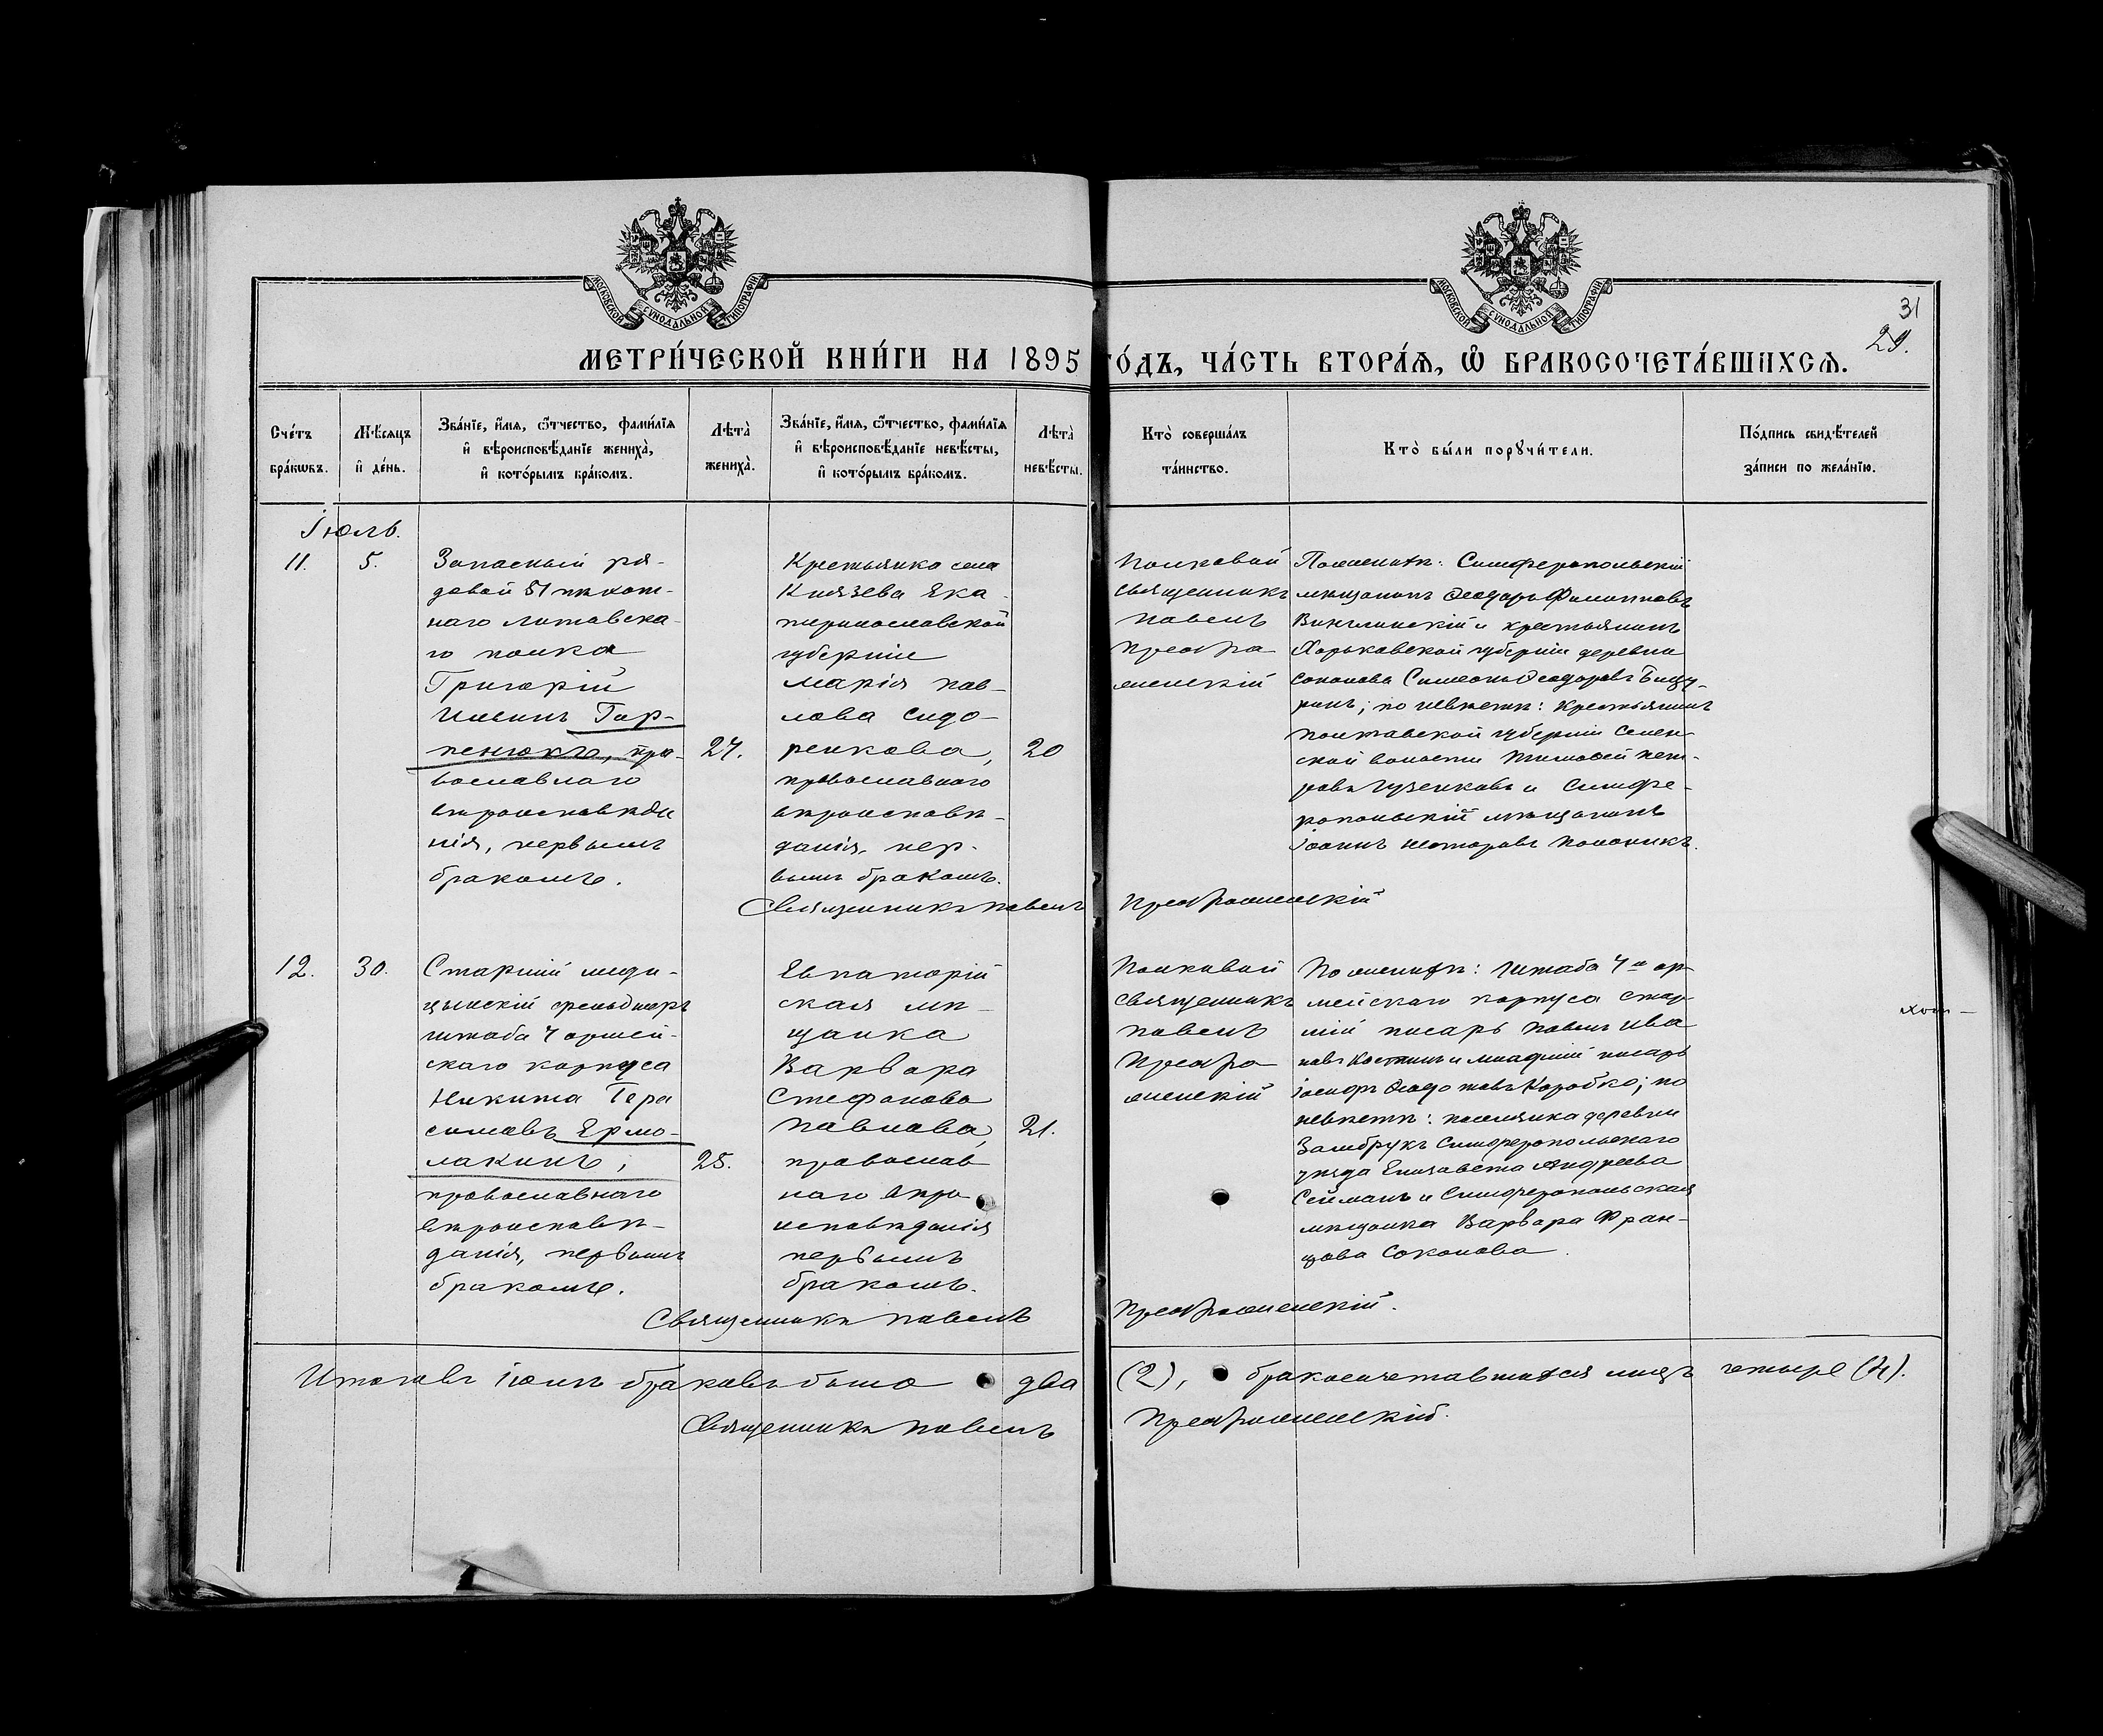 МОСКОВСКОЙ СУНОДАЛЬНОЙ ТИПОГРАФІИ
МОСКОВСКОЙ СУНОДАЛЬНОЙ ТИПОГРАФІИ
31
29.
МЕТРИ́ЧЕСКОЙ КНИ́ГИ НА 1895 ГО́ДЪ, ЧА́СТЬ ВТОРА́Я, Ѽ БРАКОСОЧЕТА́ВШИХСѦ.
Сче́тъ бра́кѡвъ.
Мѣ́сяцъ и҆ де́нь.
Зва́нїе, и҆́мѧ, ѻ҆́тчество, фами́лїѧ и҆ вѣроисповѣ́данїе жениха̀, и҆ кото́рымъ бра́комъ.
Лѣта̀ жениха̀.
Зва́нїе, и҆́мѧ, ѻ҆́тчество, фами́лїѧ и҆ вѣроисповѣ́данїе невѣ́сты, и҆ кото́рымъ бра́комъ.
Лѣта̀ невѣ́сты.
Кто̀ соверша́лъ та́инство.
Кто̀ бы́ли порꙋчи́тели.
По́дпись свидѣ́телей за́писи по жела́нїю.
Іюль.
11.
5.
Запасный ря-
довой 51 пѣхот-
наго Литовска-
го полка
Григорій
Илiинъ Гар-
пенюкъ, пра-
вославнаго
вѣроисповѣда
нія, первымъ
бракомъ.
27.
Крестьянка села
Князева Ека-
теринославской
губерніи
Марія Пав-
лова Сидо-
ренкова,
православнаго
вѣроисповѣ-
данія, пер-
вымъ бракомъ.
20
Полковой
священникъ
Павелъ
Преобра
женскій
По женихѣ: Симферопольскій
мѣщанинъ Ѳеодоръ Филипповъ
и крестьянинъ
Харьковской губерніи деревни
Соколова Симеонъ Ѳеодоровъ
по невѣстѣ: крестьянинъ
Полтавской губерніи Семен-
ской волости Тимоѳей Пет-
ровъ Гузенковъ и Симфе-
ропольскій мѣщанинъ
Іоаннъ Несторовъ
Священникъ Павелъ Преображенскій
12.
30.
Старшій меди-
цынскій фельдшеръ
штаба 7 армей-
скаго корпуса
Никита Гера
симовъ Ермо-
лакинъ;
православнаго
вѣроисповѣ-
данія, первымъ
бракомъ.
25.
Евпаторій
ская мѣ-
щанка
Варвара
Стефанова
Павлова,
православ
наго вѣро
исповѣданія
первымъ
бракомъ.
21.
Полковой
священникъ
Павелъ
Преобра
женскій
По женихѣ: штаба 7го ар-
мейскаго корпуса стар-
шій писарь Павелъ Ива
новъ Костинъ и младшій писарь
Іосифъ Ѳедотовъ Коробко; по
невѣстѣ: поселянка деревни
Замбрукъ Симферопольскаго
уѣзда Елизавета Андреева
Сейманъ и Симферопольская
мѣщанка Варвара Фран-
цова Соколова.
Священникъ Павелъ Преображенскій.
Итого въ Іюлѣ браковъ было два (2), бракосочетавшихся лицъ четыре (4).
Священникъ Павелъ Преображенскій.